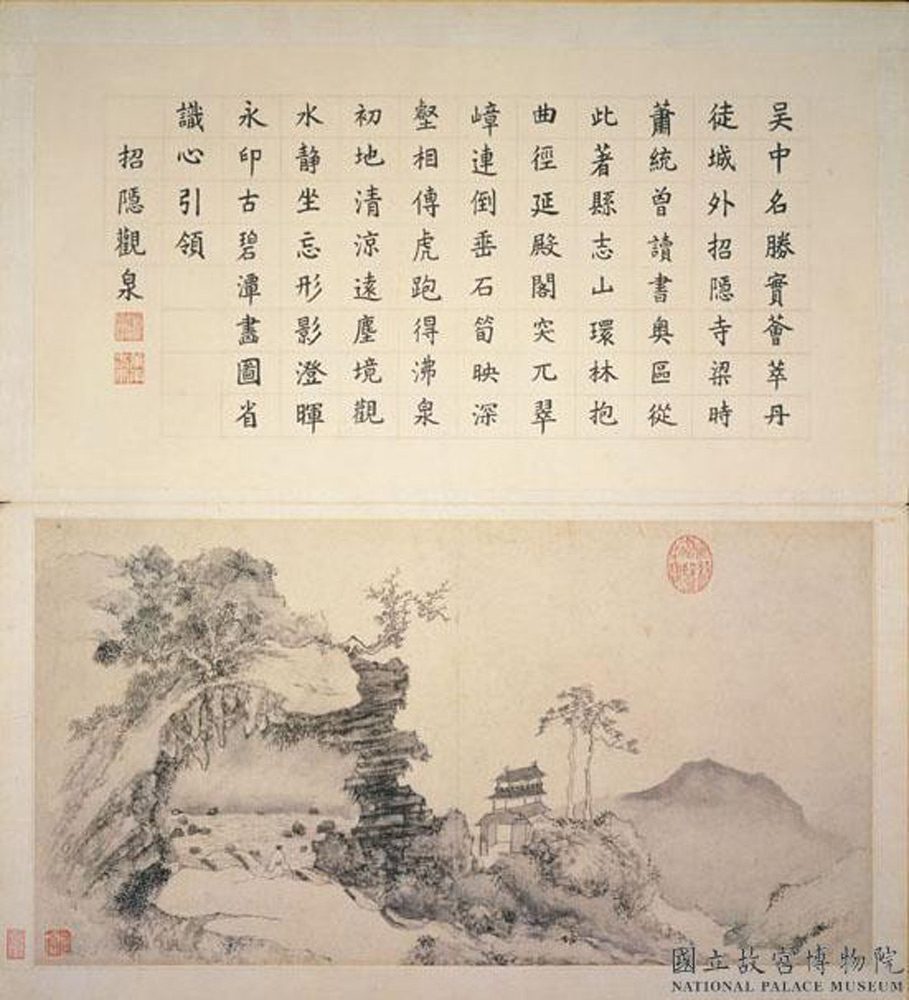 吴中名勝實薈萃丹
徒城外招隱寺梁時
蕭統曽讀書奥區從
此著縣志山環林抱
曲徑延殿閣突兀翠
嶂連倒垂石筍映深
壑相傳虎跑得沸泉
初地清涼遠塵境觀
水静坐忘形影澄暉
永印古碧潭畵圖省
識心引領
招隱觀泉
國立故宮博物院
NATIONAL PALACE MUSEUM